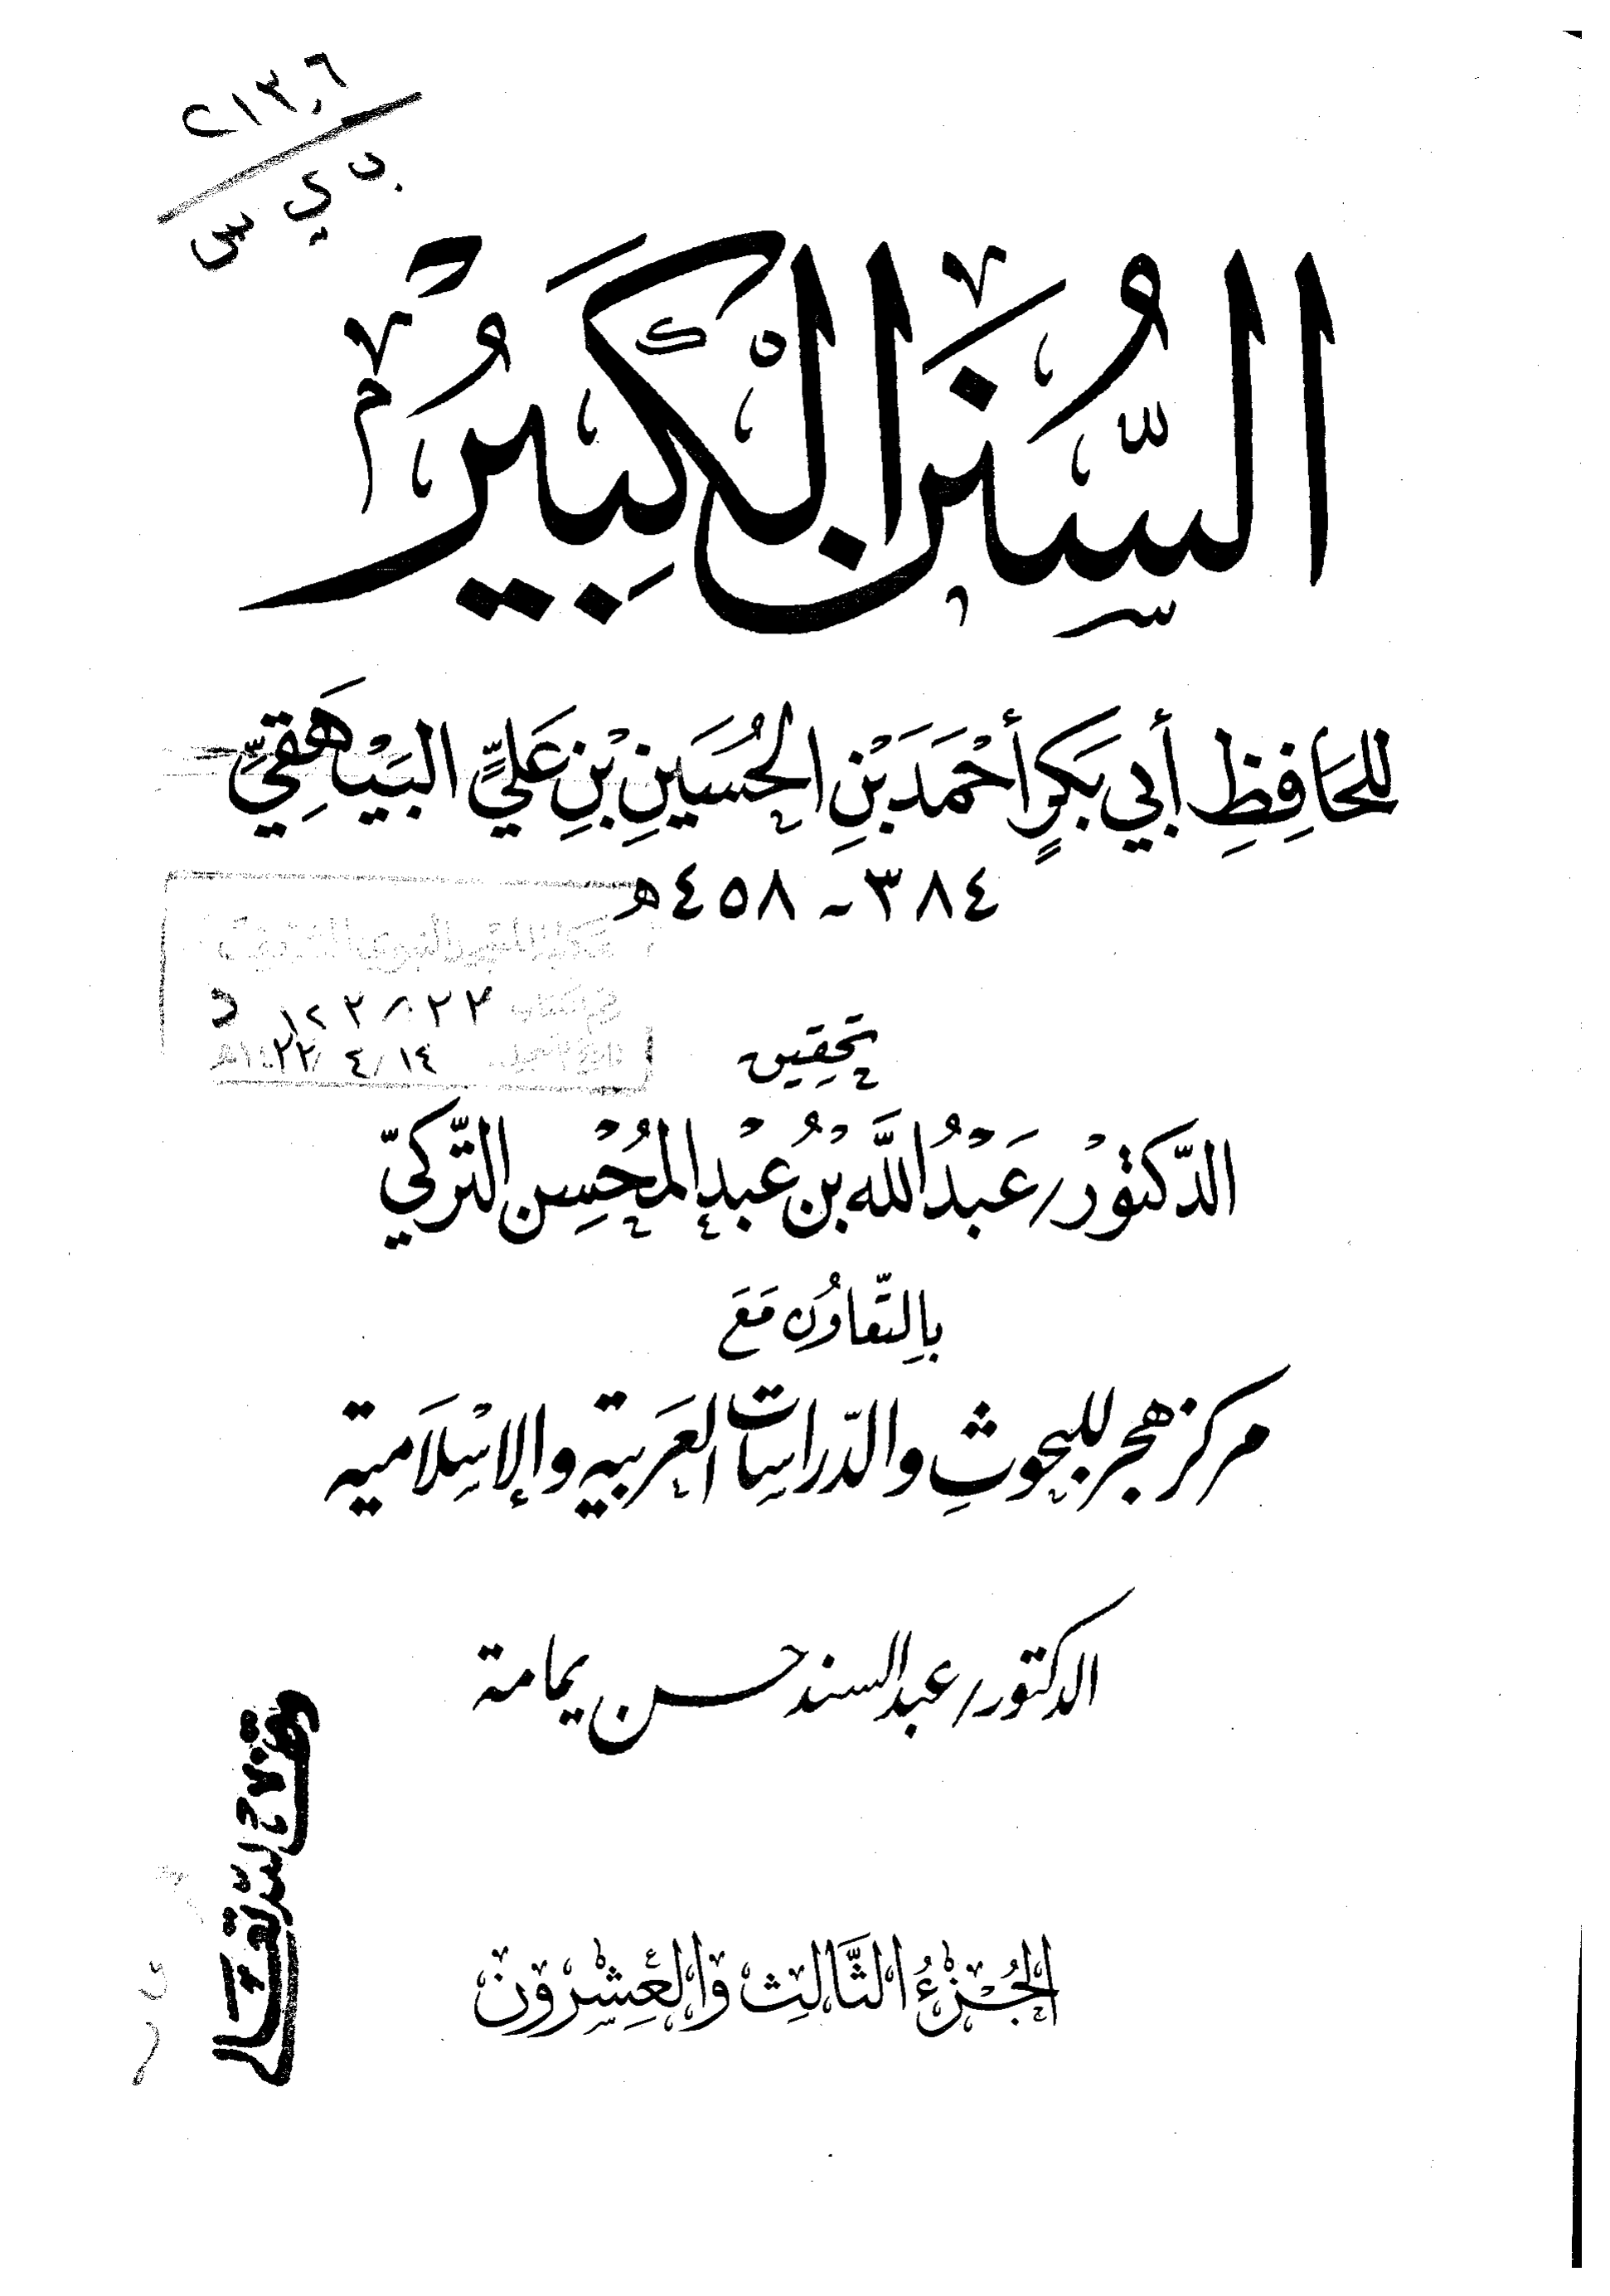 ٢١٣,٦
ب ي س
السُّنَنُ الْكَبِيرُ
لِلحَافِظِ أَبي بَكرٍ أَحْمَدَ بْنِ الحُسَينِ بْنِ عَليٍّ البَيْهَقِيِّ
٣٨٤ - ٤٥٨ هـ
١٢٢٨٢٢ د
١٤ / ٤ / ١٤٢٢هـ
تحقِيق
الدّكتوْر/ عَبْدُ اللَّه بْنُ عَبْد المُحْسِن التّركيّ
بِالتّعَاوُن مَعَ
مركز هجر للبحوثِ والدّراسَات العَربية والإسْلَامية
الدكتور/ عبد السند حسن يمامة
وقف لله تعالى
الجُزْءُ الثَّالِث وَالعِشْرون